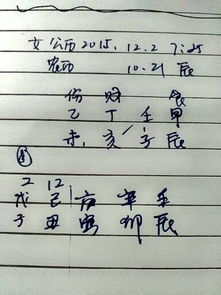 女 公历2015.12.2 7:25
农历 10.21 辰
伤 财 食
乙 丁 壬 甲
未. 亥 子 辰
2 12
戊 己 | 庚 辛 壬
子 丑 寅 卯 辰